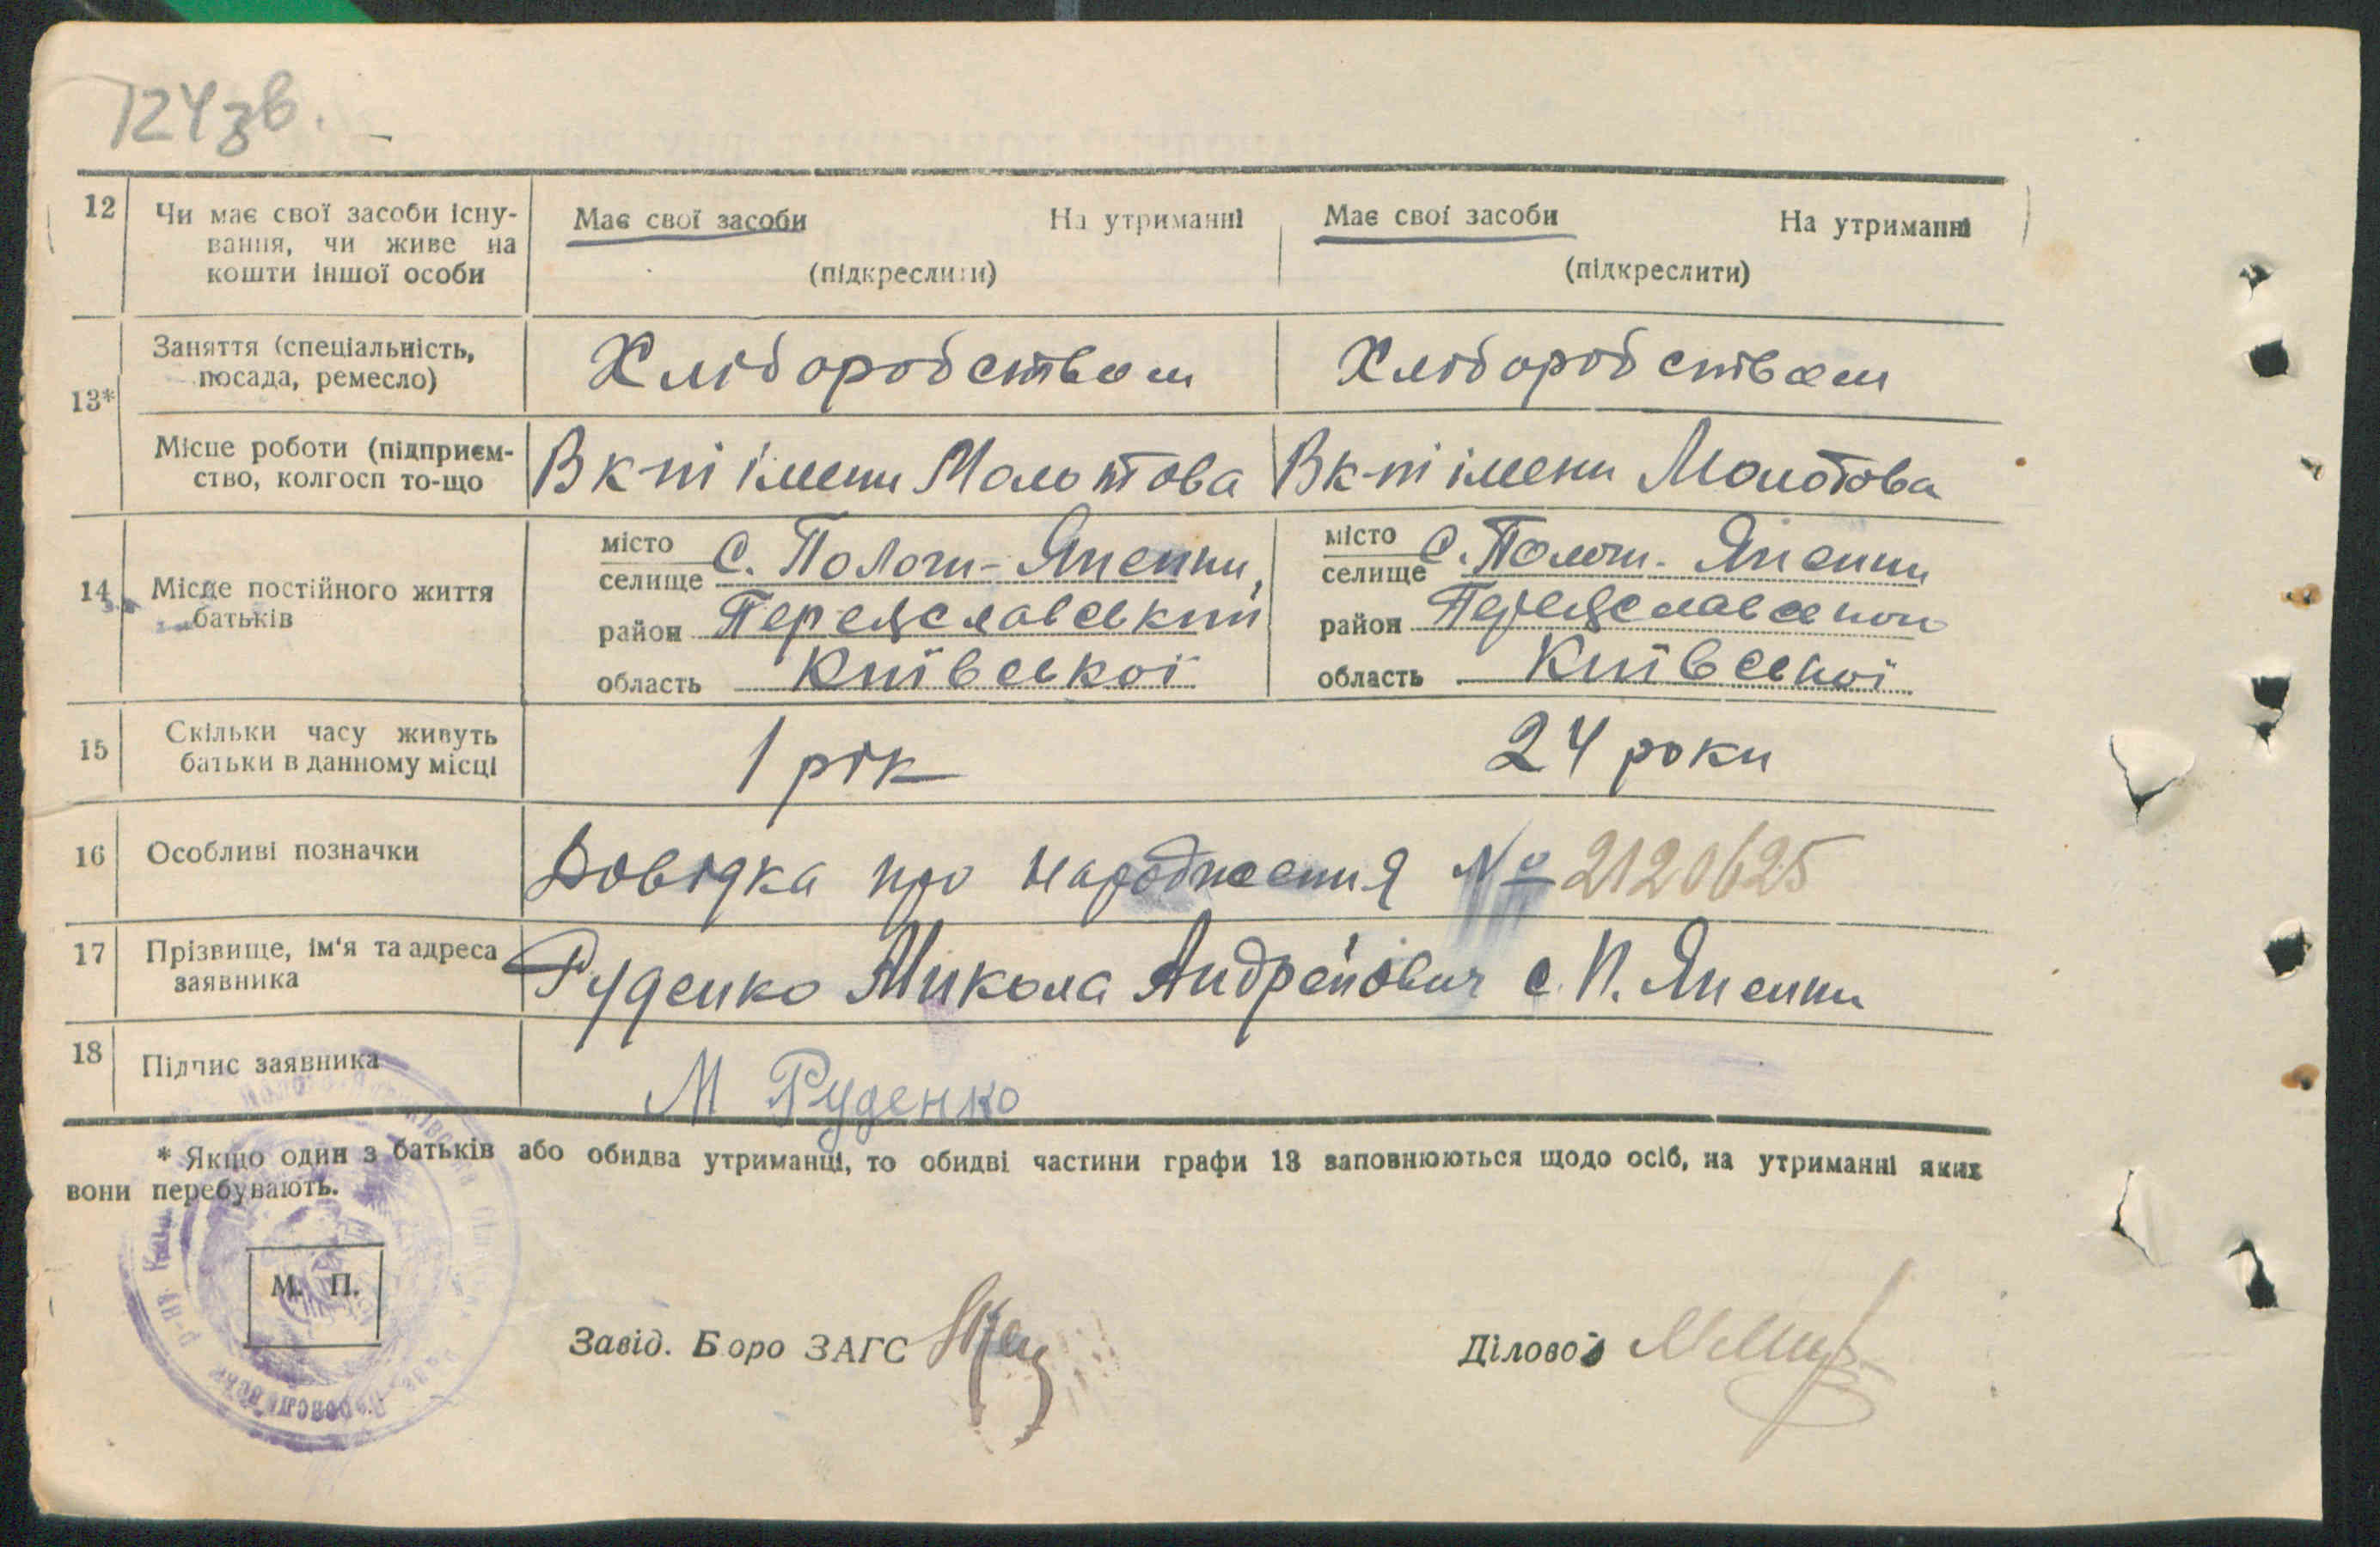 124зв.
12 Чи має свої засоби існу- Має свої засоби На утриманні Має свої засоби На утриманні
вання, чи живе на
кошти іншої особи (підкреслити) (підкреслити)
13*
Заняття (спеціальність, Хліборобством Хліборобством
посада, ремесло)
Місце роботи (підприєм- В к-пі імени Молотова В к-пі імени Молотова
ство, колгосп то-що
14 Місце постійного життя
батьків
місто С. Пологи-Яненки, місто С. Пологи-Яненки
селище селище
район Переяславський район
область Київської область Київської
15 Скільки часу живуть 1 рік 24 роки
батьки в данному місці
16 Особливі позначки Довідка про народження № 2120625
17 Прізвище, ім'я та адреса Руденко Микола Андрейович с. П. Яненки
заявника
18 Підпис заявника М Руденко
* Якщо один з батьків або обидва утриманці, то обидві частини графи 13 заповнюються щодо осіб, на утриманні яких
вони перебувають.
М. П.
Завід. Бюро ЗАГС Діловод